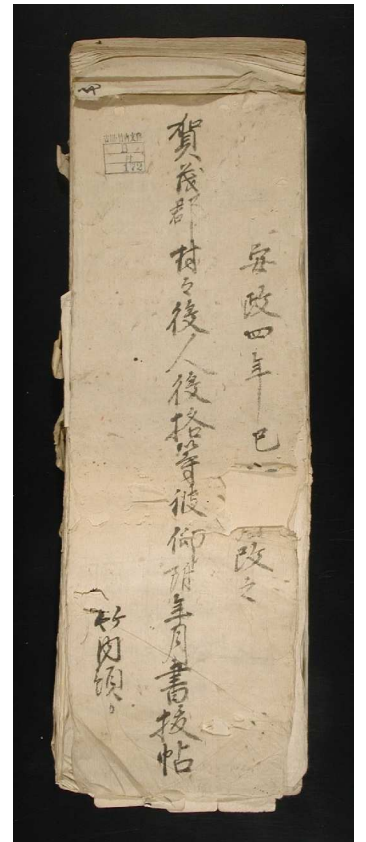 安政四年巳 改之
賀茂郡村々役人役格等被仰附年月書抜帖
竹内